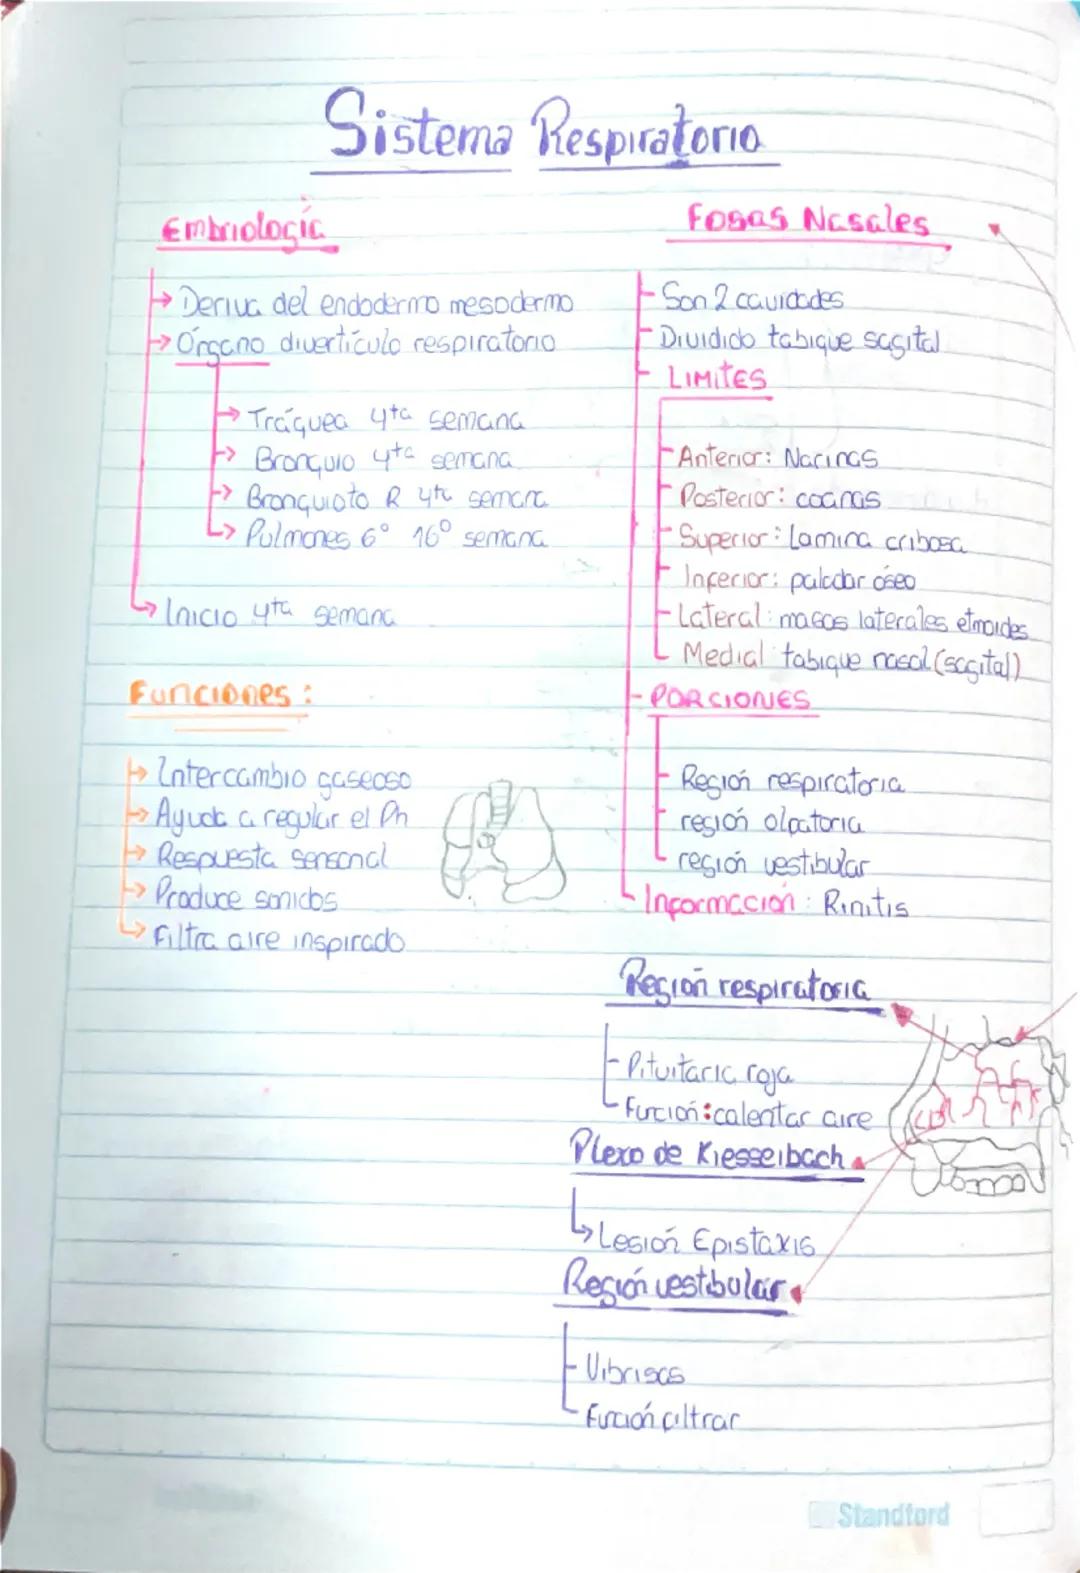 Sistema Respiratorio
Embriología
Deriva del endodermo mesodermo
Órgano divertículo respiratorio
Tráquea 4ta semana
Bronquio 4ta semana
Bronquioto R 4ta semana
Pulmones 6° 16° semana
Inicio 4ta semana
Funciones:
Intercambio gaseoso
Ayuda a regular el Ph
Respuesta sensorial
Produce sonidos
Filtra aire inspirado
Fosas Nasales
Son 2 cavidades
Dividido tabique sagital
LIMITES
Anterior: Narinas
Posterior: coanas
Superior: Lamina cribosa
Inferior: paladar óseo
Lateral: masas laterales etmoides
Medial tabique nasal (sagital)
PORCIONES
Región respiratoria
región olfatoria
región vestibular
Información: Rinitis
Región respiratoria
Pituitaria roja
Función: calentar aire
Plexo de Kiesseibach
Lesión Epistaxis
Región vestibular
Vibrisas
Función filtrar
Standford